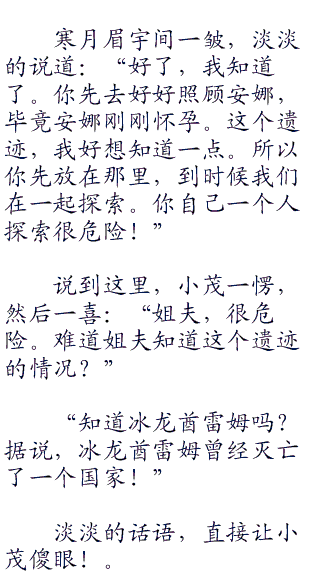 寒月眉宇间一皱，淡淡
的说道：“好了，我知道
了。你先去好好照顾安娜，
毕竟安娜刚刚怀孕。这个遗
迹，我好想知道一点。所以
你先放在那里，到时候我们
在一起探索。你自己一个人
探索很危险！”
说到这里，小茂一愣，
然后一喜：“姐夫，很危
险。难道姐夫知道这个遗迹
的情况？”
“知道冰龙酋雷姆吗？
据说，冰龙酋雷姆曾经灭亡
了一个国家！”
淡淡的话语，直接让小
茂傻眼！。